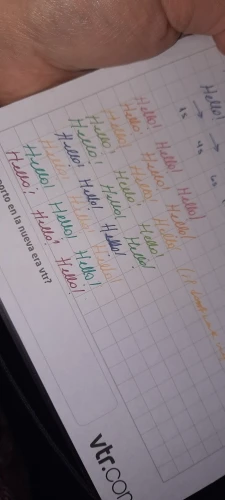 Hello!
Hello! Hello! Hello!
Hello! Hello! Hello!
Hello! Hello! Hello!
Hello! Hello! Hello!
Hello! Hello! Hello!
Hello! Hello! Hello!
Hello! Hello! Hello!
Hello! Hello! Hello!
porto en la nueva era vtr?
vtr.com